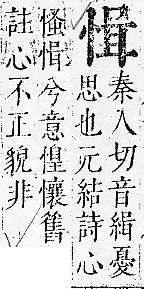 愲秦入切音緝憂
思也元結詩心
慅愲今意惶懷舊
註心不正貌非